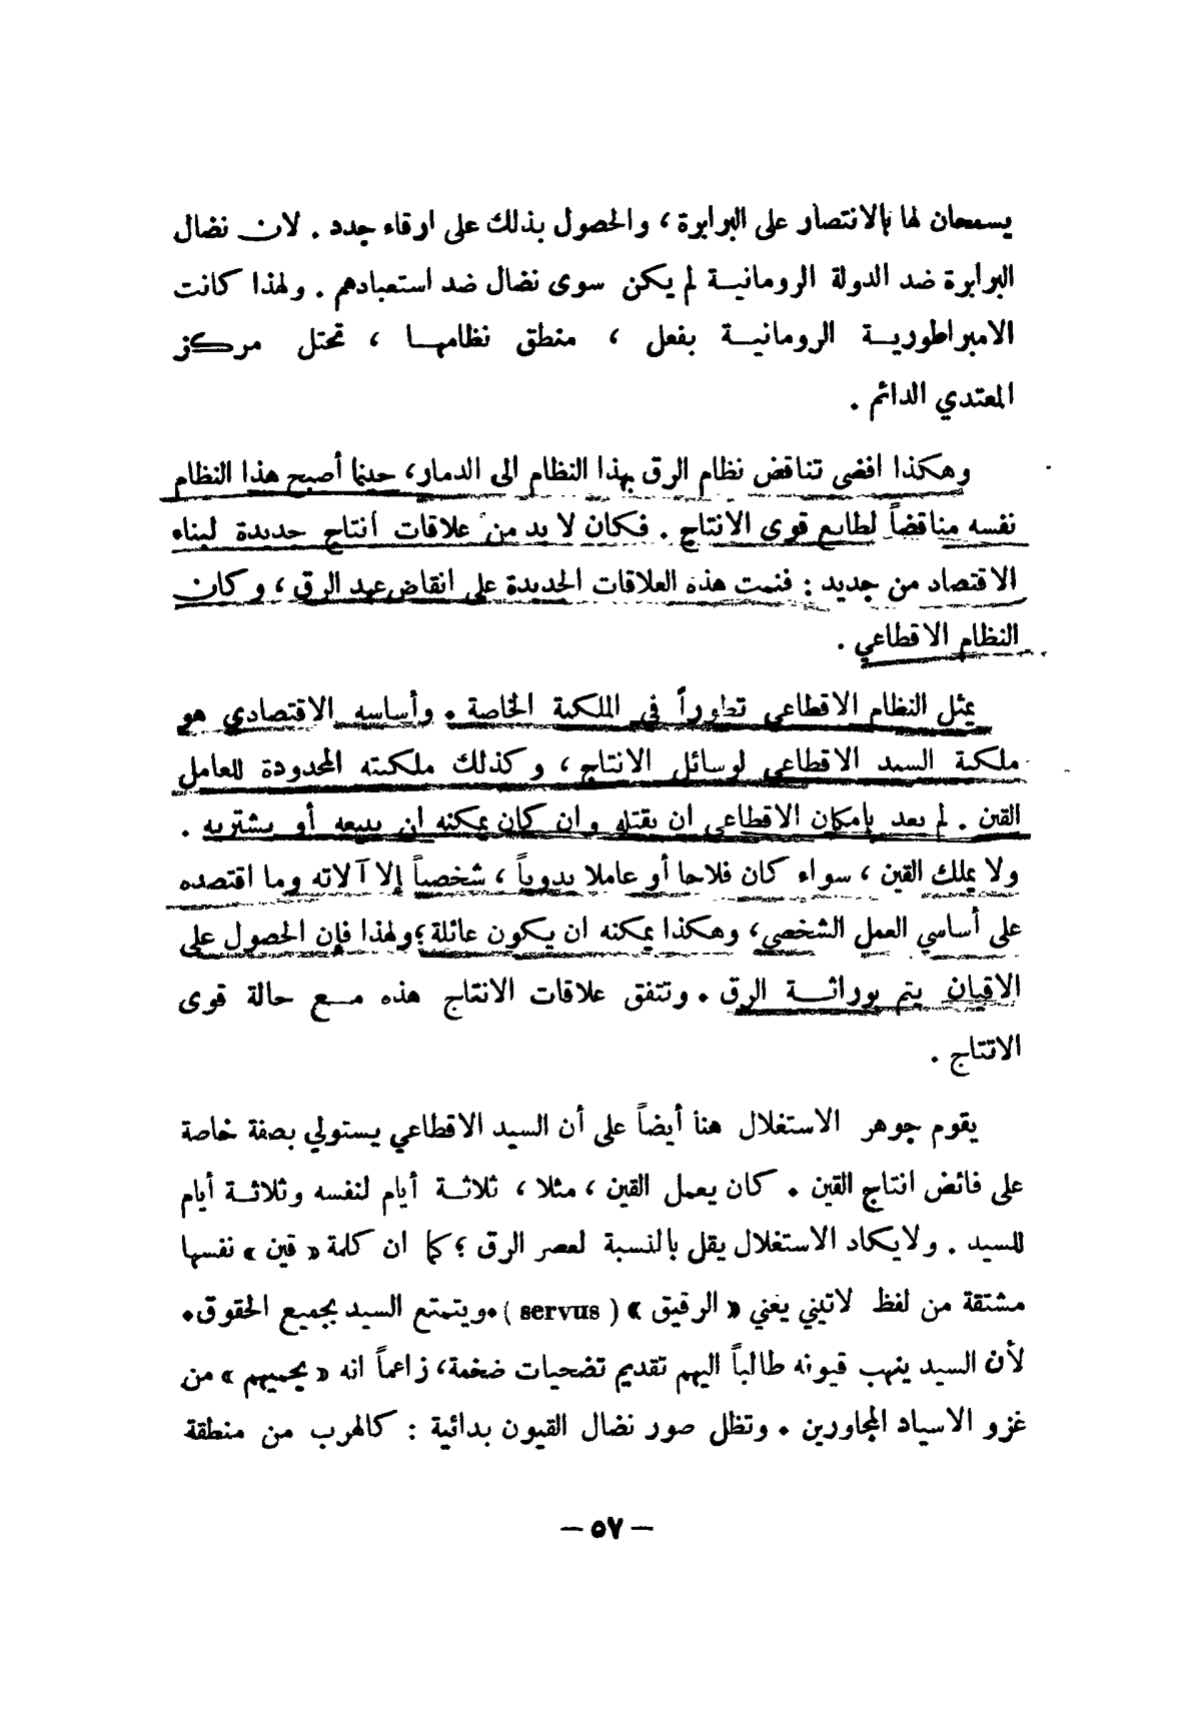 يسمحان لها بالانتصار على البرابرة ، والحصول بذلك على ارقاء جدد . لان نضال
البرابرة ضد الدولة الرومانية لم يكن سوى نضال ضد استعبادهم . ولهذا كانت
الامبراطورية الرومانية بفعل ، منطق نظامها ، تحتل مركز
المعتدي الدائم .
وهكذا افضى تناقض نظام الرق بهذا النظام الى الدمار، حينما أصبح هذا النظام
نفسه مناقضاً لطابع قوى الانتاج . فكان لا بد من علاقات انتاج جديدة لبناء
الاقتصاد من جديد : فنمت هذه العلاقات الجديدة على انقاض عهد الرق ، وكان
النظام الاقطاعي .
يمثل النظام الاقطاعي تطوراً في الملكية الخاصة . وأساسه الاقتصادي هو
ملكية السيد الاقطاعي لوسائل الانتاج ، وكذلك ملكيته المحدودة للعامل
القن . لم يعد بإمكان الاقطاعي ان يقتله وان كان يمكنه ان يبيعه أو يشتريه .
ولا يملك القين ، سواء كان فلاحا أو عاملا يدوياً ، شخصياً إلا آلاته وما اقتصده
على أساسي العمل الشخصي، وهكذا يمكنه ان يكون عائلة ؛ ولهذا فإن الحصول على
الاقيان يتم بوراثة الرق . وتتفق علاقات الانتاج هذه مع حالة قوى
الانتاج .
يقوم جوهر الاستغلال هنا أيضاً على أن السيد الاقطاعي يستولي بصفة خاصة
على فائض انتاج القين . كان يعمل القين ، مثلا ، ثلاثة أيام لنفسه وثلاثة أيام
للسيد . ولايكاد الاستغلال يقل بالنسبة لعصر الرق ؛ كما ان كلمة « قين » نفسها
مشتقة من لفظ لاتيني يعني « الرقيق » ( servus ) . ويتمتع السيد بجميع الحقوق .
لأن السيد ينهب قيونه طالباً اليهم تقديم تضحيات ضخمة، زاعماً انه « يحميهم » من
غزو الاسياد المجاورين . وتظل صور نضال القيون بدائية : كالهرب من منطقة
— ٥٧ —